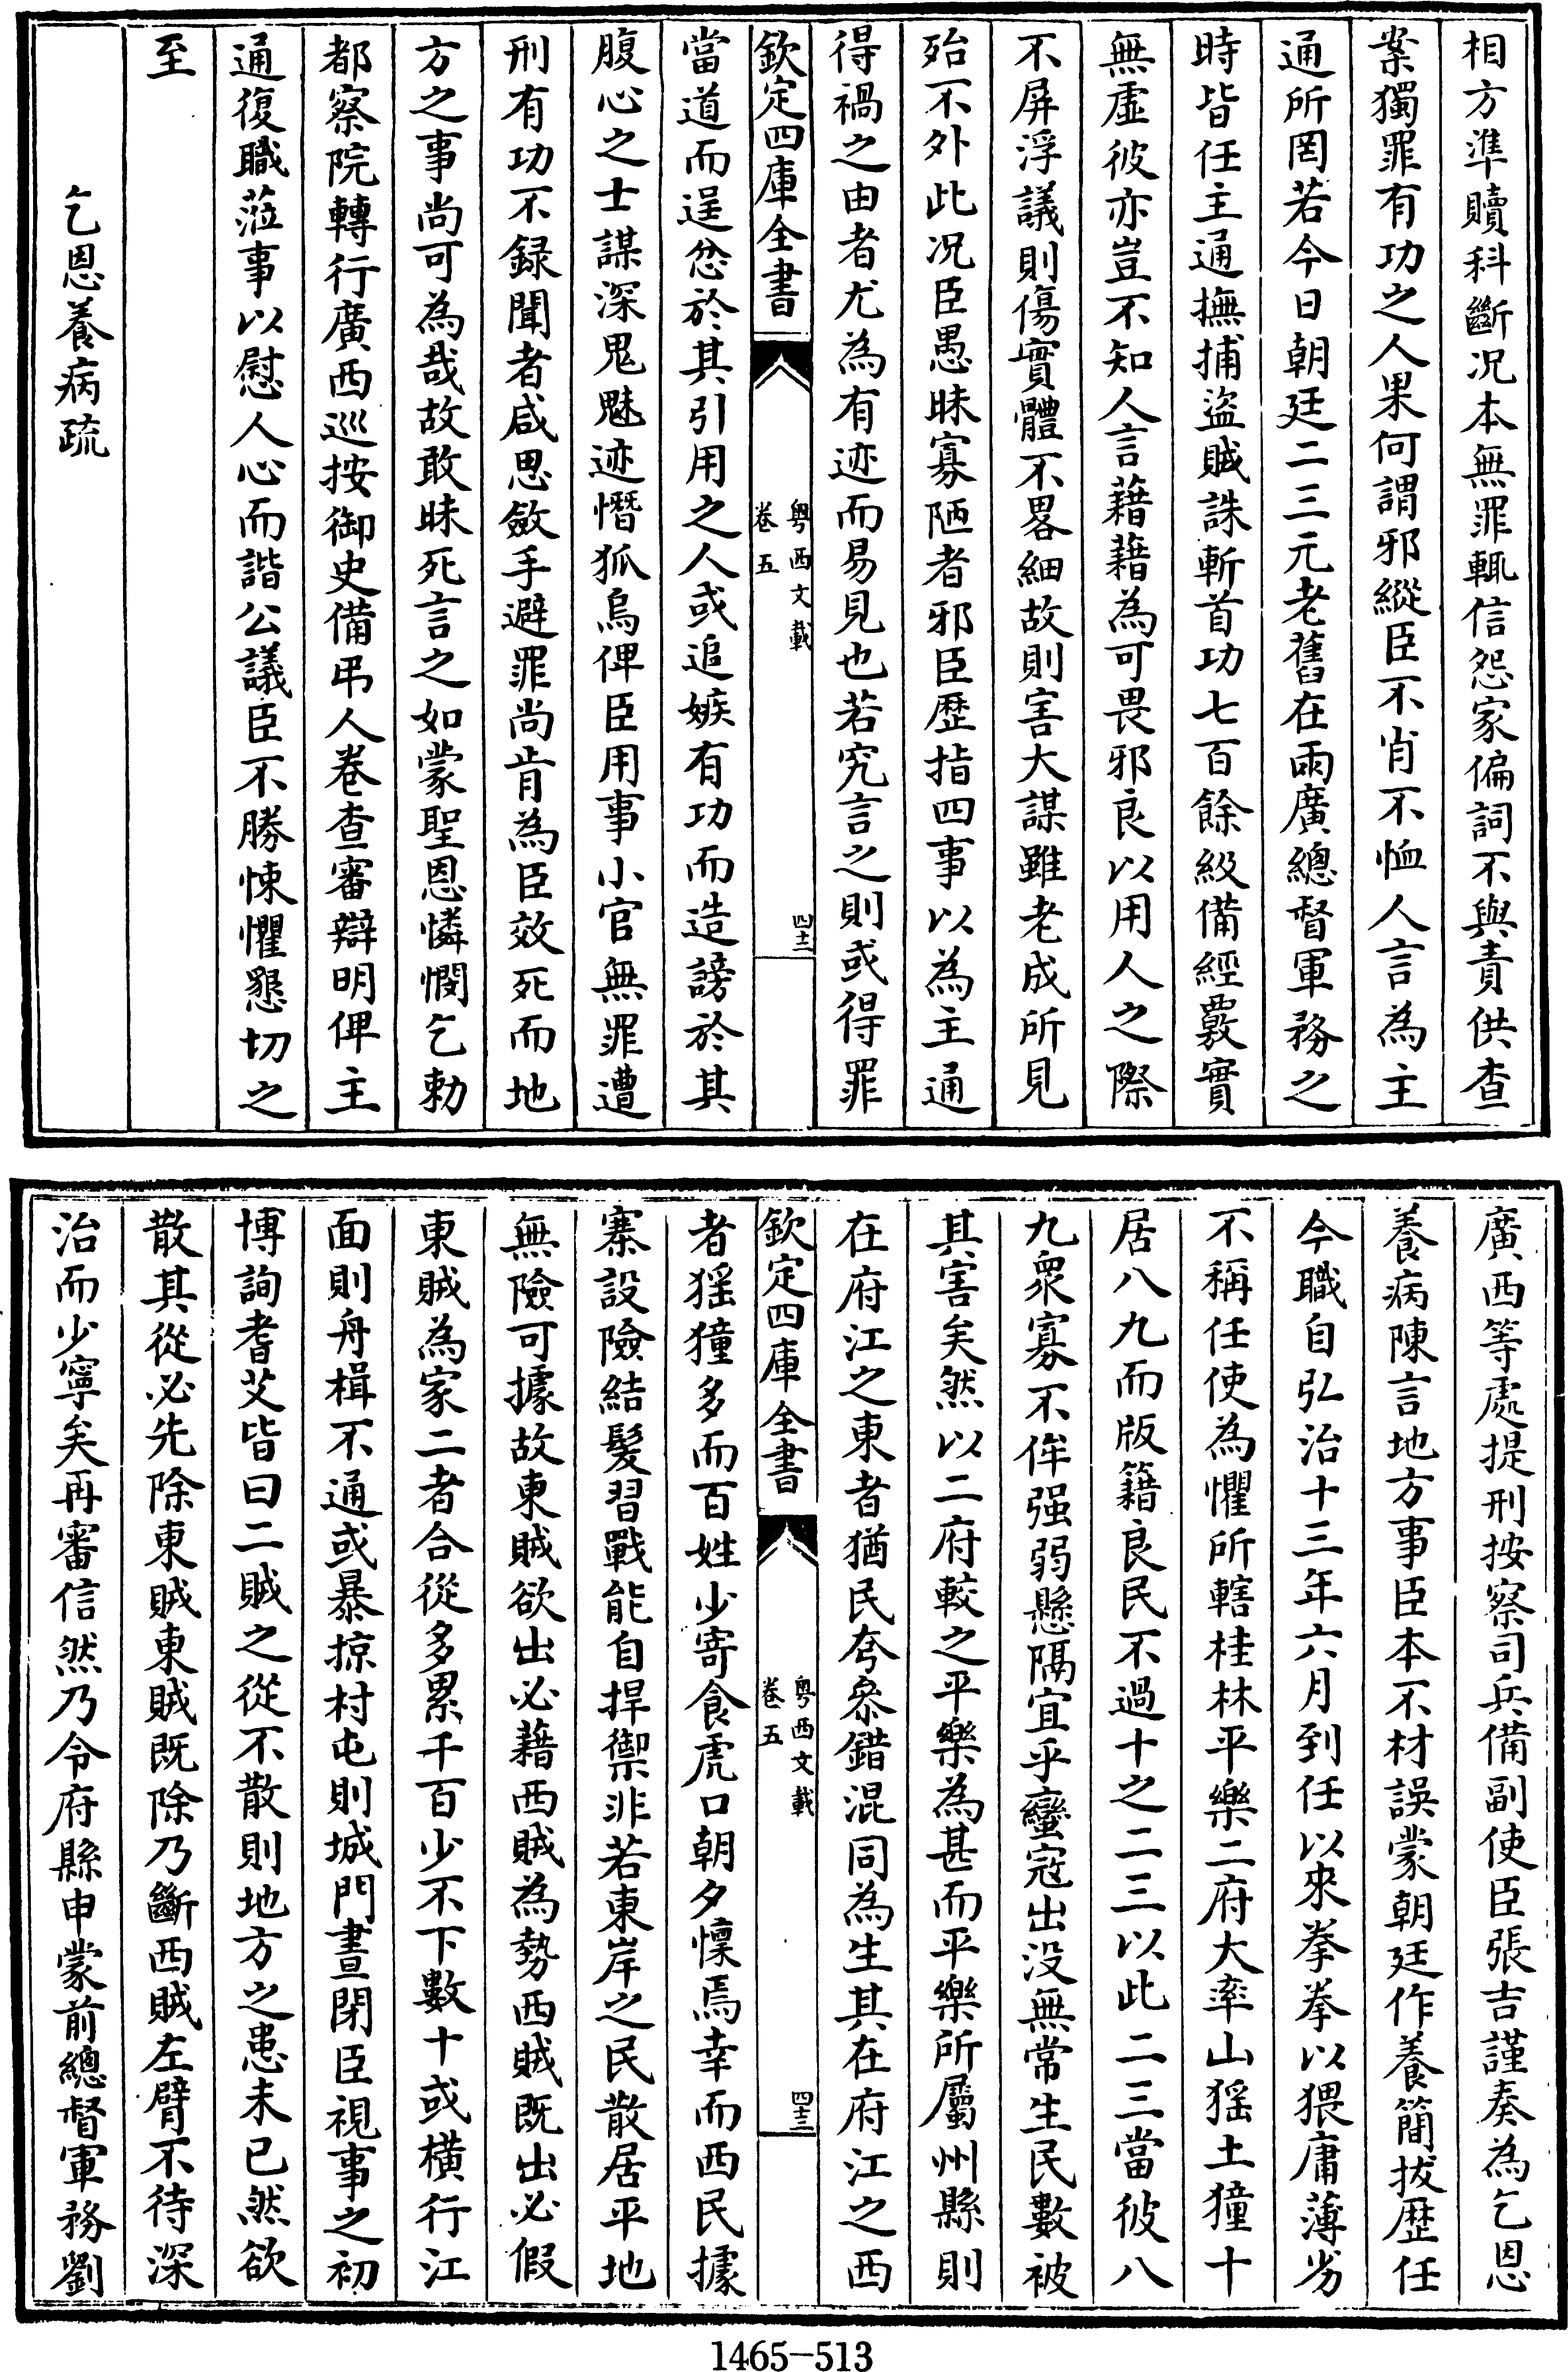 相方準贖科斷况本無罪輒信怨家偏詞不與責供查
案獨罪有功之人果何謂邪縱臣不肖不恤人言為主
通所罔若今日朝廷二三元老舊在兩廣總督軍務之
時皆任主通撫捕盜賊誅斬首功七百餘級備經覈實
無虛彼亦豈不知人言藉藉為可畏邪良以用人之際
不屏浮議則傷實體不畧細故則害大謀雖老成所見
殆不外此况臣愚昧寡陋者邪臣歷指四事以為主通
得禍之由者尤為有迹而易見也若究言之則或得罪
欽定四庫全書
粤西文載
卷五
四十二
當道而逞忿於其引用之人或追嫉有功而造謗於其
腹心之士謀深鬼魅迹憯狐烏俾臣用事小官無罪遭
刑有功不録聞者咸思斂手避罪尚肯為臣效死而地
方之事尚可為哉故敢昧死言之如蒙聖恩憐憫乞勅
都察院轉行廣西巡按御史備弔人卷查審辯明俾主
通復職蒞事以慰人心而諧公議臣不勝悚懼懇切之
至
乞恩養病疏
廣西等處提刑按察司兵備副使臣張吉謹奏為乞恩
養病陳言地方事臣本不材誤蒙朝廷作養簡拔歷任
今職自弘治十三年六月到任以來拳拳以猥庸薄劣
不稱任使為懼所轄桂林平樂二府大率山猺土獞十
居八九而版籍良民不過十之二三以此二三當彼八
九衆寡不侔强弱懸隔宜乎蠻寇出没無常生民數被
其害矣然以二府較之平樂為甚而平樂所屬州縣則
在府江之東者猶民夸叅錯混同為生其在府江之西
欽定四庫全書
粤西文載
卷五
四十三
者猺獞多而百姓少寄食虎口朝夕懍焉幸而西民據
寨設險結髮習戰能自捍禦非若東岸之民散居平地
無險可據故東賊欲出必藉西賊為勢西賊既出必假
東賊為家二者合從多累千百少不下數十或橫行江
面則舟楫不通或暴掠村屯則城門晝閉臣視事之初
博詢耆艾皆曰二賊之從不散則地方之患未已然欲
散其從必先除東賊東賊既除乃斷西賊左臂不待深
治而少寧矣再審信然乃令府縣申蒙前總督軍務劉
1465-513